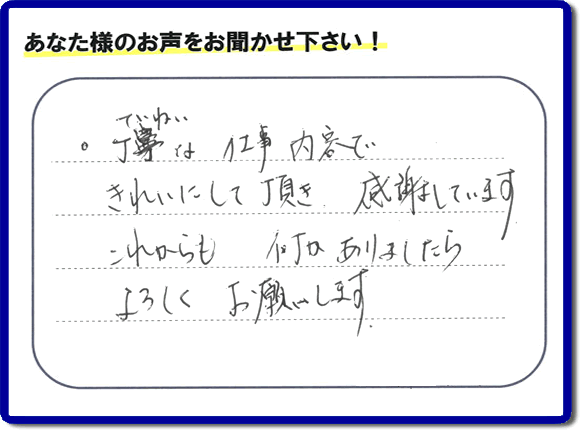 あなた様のお声をお聞かせ下さい！
ていねい
。丁寧な 仕事内容で
きれいにして頂き 感謝をしています
これからも 何かありましたら
よろしく お願いします。